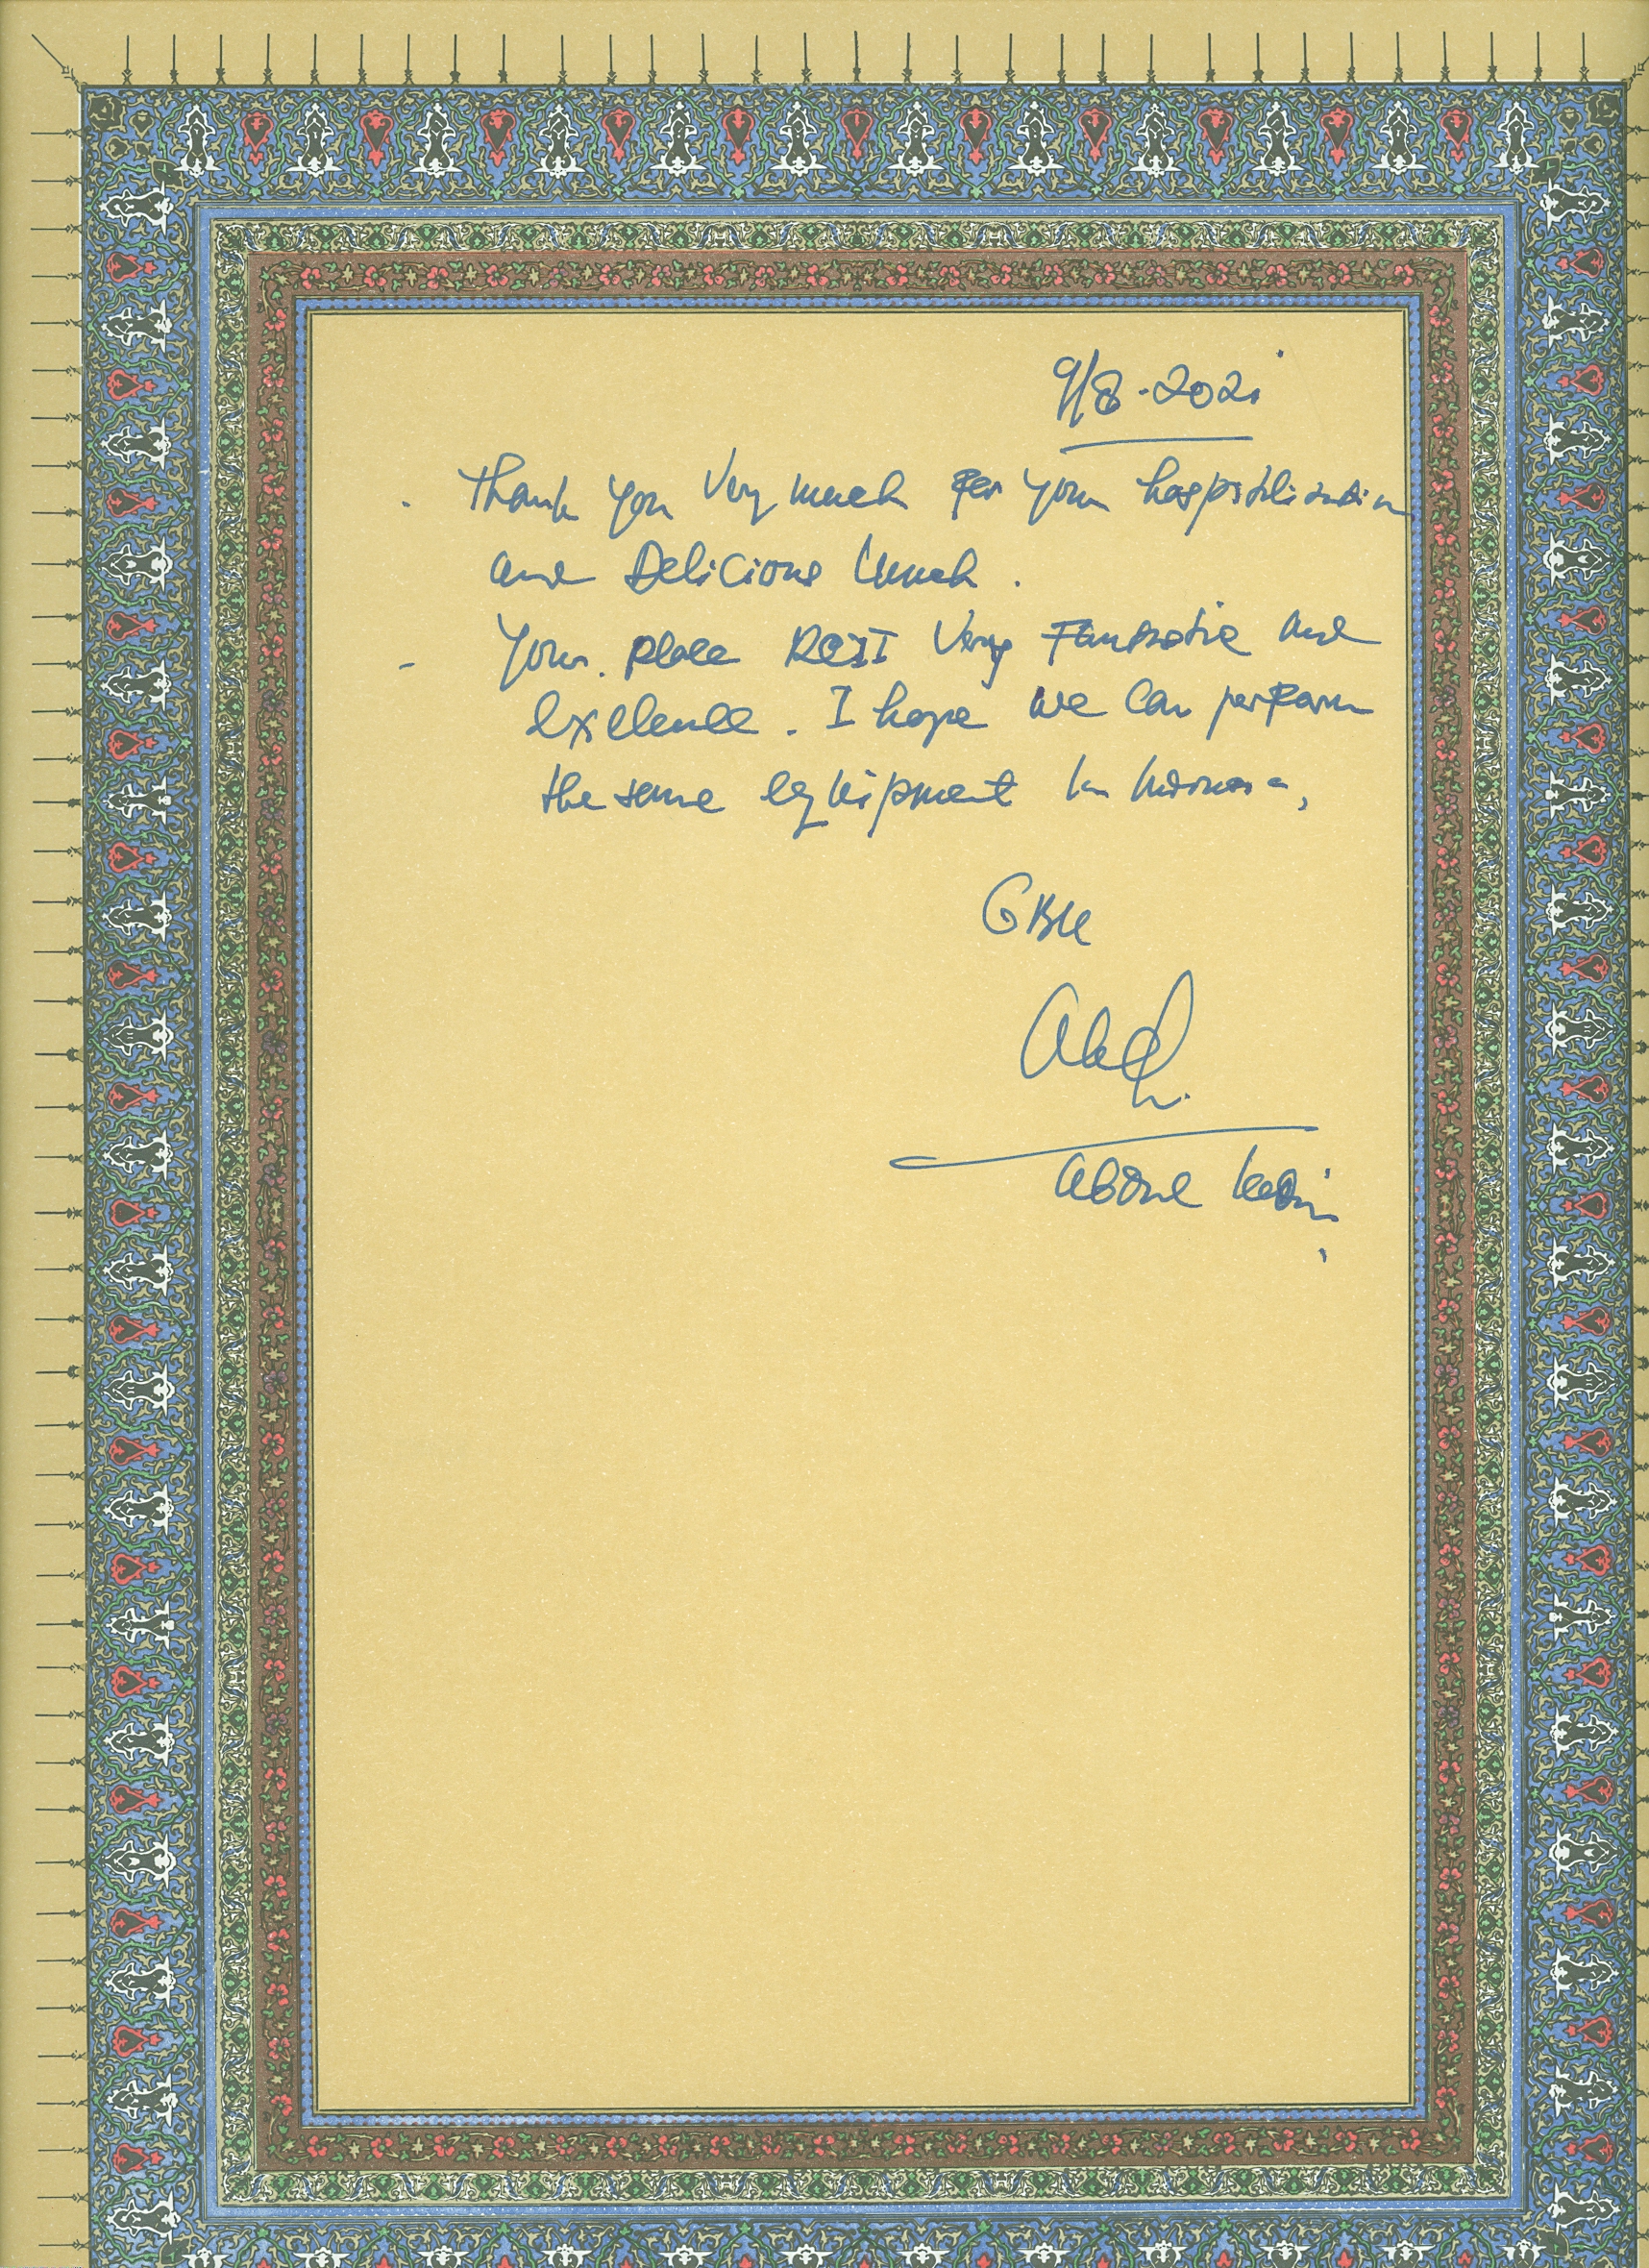 9/8-2021
. Thank you Very much For your
and Delicious Lunch .
- Your. place RCII Very Fantastic and
Exelence . I hope we can perform
the same eqkipment in
GBU
Abdul